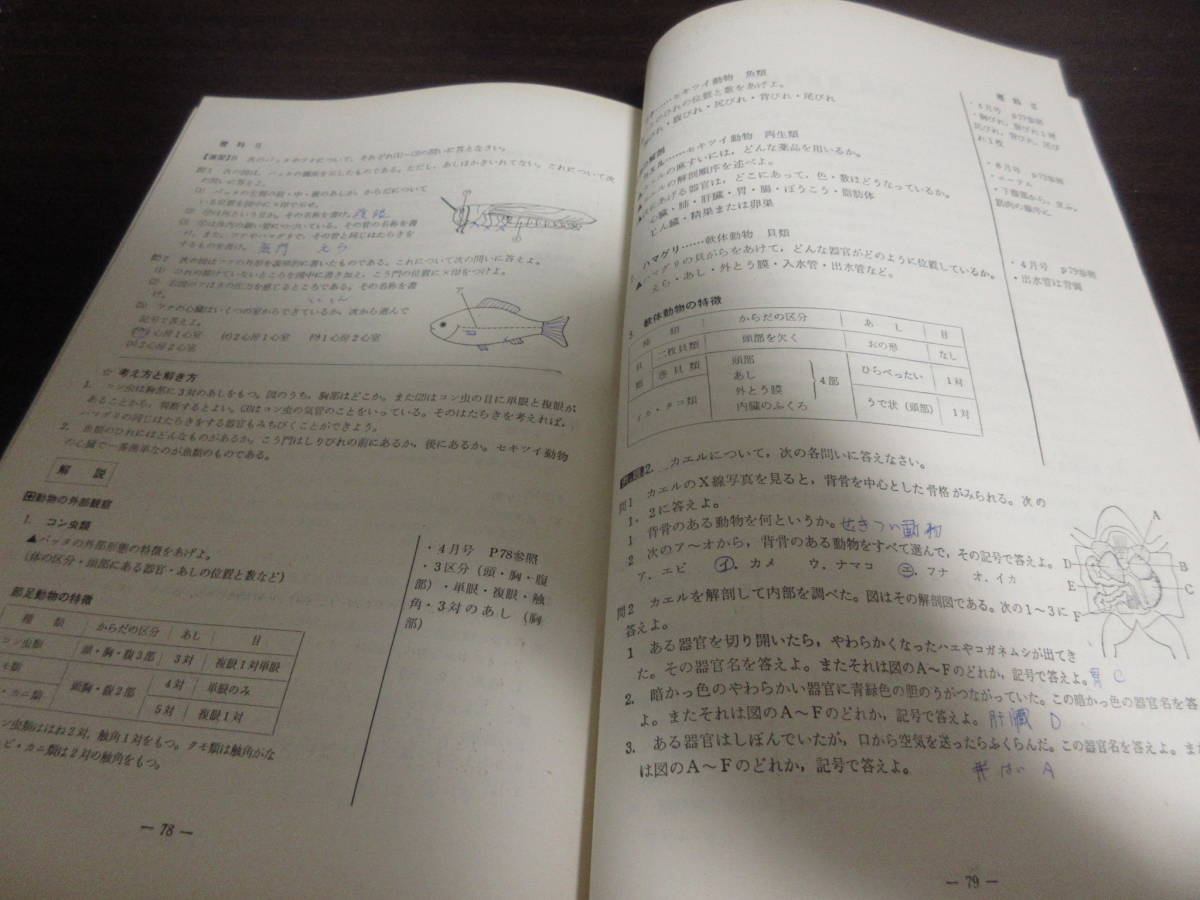 理科 II
【演習】1 次のバッタやフナについて，それぞれ(1)～(3)の問いに答えなさい。
問1 次の図は，バッタの側面を示したものである。ただし，あしはかきいれてない。これについて次
の問いに答えよ。
(1) バッタの左側の前・中・後のあしが，からだについて
いる位置を図中に×印で示せ。
(2) ㋐は何という目か。その名称を書け。複眼
け。また，フナやハマグリで，その管と同じはたらきを
するものを書け。 気門 えら
問2 次の図はフナの外形を説明的に書いたものである。これについて次の問いに答えよ。
(1) ひれの欠けていないところを図中に書き加え，こう門の位置に×印をつけよ。
(2) 右図のアは水の圧力を感じるところである。その名称を書
け。
(3) フナの心臓はいくつの室からできているか。次から選んで
記号で答えよ。
(ア)1心房1心室 (イ)2心房1心室 (ウ)1心房2心室
(エ)2心房2心室
ア
☆ 考え方と解き方
1. コン虫は胸部に3対のあしをもつ。図のうち，胸部はどこか。また(2)はコン虫の目に単眼と複眼が
あることから，判断するとよい。(3)はコン虫の気管のことをいっている。そのはたらきを考えれば，
ハマグリの同じはたらきをする器官もみちびくことができよう。
2. 魚類のひれにはどんなものがあるか。こう門はしりびれの前にあるか，後にあるか。セキツイ動物
の心臓で一番簡単なのが魚類のものである。
解 説
田動物の外部観察
1. コン虫類
▲バッタの外部形態の特徴をあげよ。
(体の区分・頭部にある器官・あしの位置と数など)
・4月号 P78参照
・3区分（頭・胸・腹
部）・単眼・複眼・触
角・3対のあし（胸
部）
節足動物の特徴
種 類 からだの区分 あし 目
コン虫類 頭・胸・腹3部 3対 複眼1対単眼
モ類 頭胸・腹2部 4対 単眼のみ
・カニ類 5対 複眼1対
ン虫類ははね2対，触角1対をもつ。クモ類は触角がな
ビ・カニ類は2対の触角をもつ。
— 78 —
セキツイ動物 魚類
のひれの位置と数をあげよ。
びれ・腹びれ・尻びれ・背びれ・尾びれ
の解剖
セキツイ動物 両生類
の麻すいには，どんな薬品を用いるか。
ルの解剖順序を述べよ。
あげる器官は，どこにあって，色・数はどうなっているか。
心臓・肺・肝臓・胃・腸・ぼうこう・脂肪体
じん臓・精巣または卵巣
ハマグリ……軟体動物 貝類
▲ハマグリの貝がらをあけて，どんな器官がどのように位置しているか。
えら・あし・外とう膜・入水管・出水管など。
理科 II
・4月号 p79参照
・胸びれ，腹びれ1対
尻びれ，背びれ，尾び
れ1枚
・6月号 p79参照
・エーテル
・下腹部から，皮ふ，
筋肉の順序に
・4月号 p79参照
・出水管は背側
軟体動物の特徴
種 類 からだの区分 あし 目
貝類 二枚貝類 頭部を欠く おの形 なし
巻貝類 頭部 あし 外とう膜 内臓のふくろ 4部 ひらべったい 1対
イカ・タコ類 うで状（頭部） 1対
2. カエルについて，次の各問いに答えなさい。
問1 カエルのX線写真を見ると，背骨を中心とした骨格がみられる。次の
1，2に答えよ。
1 背骨のある動物を何というか。せきつい動物
2 次のア～オから，背骨のある動物をすべて選んで，その記号で答えよ。
ア．エビ イ．カメ ウ．ナマコ エ．フナ オ．イカ
問2 カエルを解剖して内部を調べた。図はその解剖図である。次の1～3に
答えよ。
1 ある器官を切り開いたら，やわらかくなったハエやコガネムシが出てき
た。その器官名を答えよ。またそれは図のA～Fのどれか，記号で答えよ。胃 C
2. 暗かっ色のやわらかい器官に青緑色の胆のうがつながっていた。この暗かっ色の器官名を答
よ。またそれは図のA～Fのどれか，記号で答えよ。肝臓 D
3. ある器官はしぼんでいたが，口から空気を送ったらふくらんだ。この器官名を答えよ。また
は図のA～Fのどれか，記号で答えよ。 はい A
A
B
C
D
E
F
— 79 —